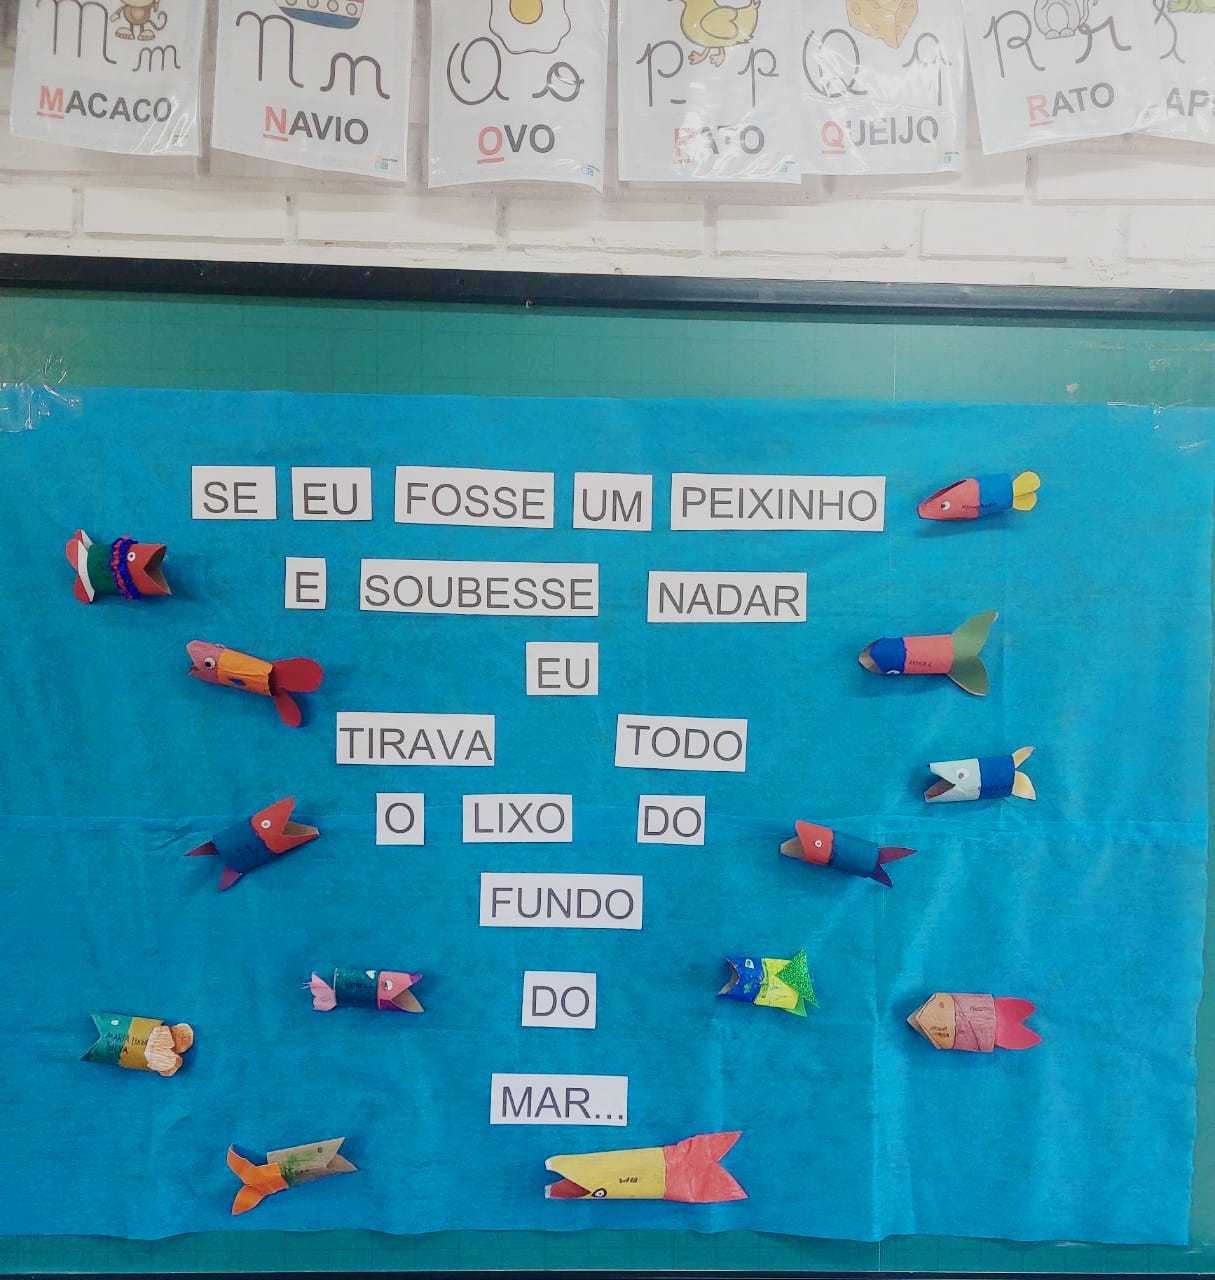 M m N n O o P p Q q R r
MACACO NAVIO OVO PATO QUEIJO RATO
SE EU FOSSE UM PEIXINHO
E SOUBESSE NADAR
EU
TIRAVA TODO
O LIXO DO
FUNDO
DO
MAR...
MARIA LUIZA
SILVA